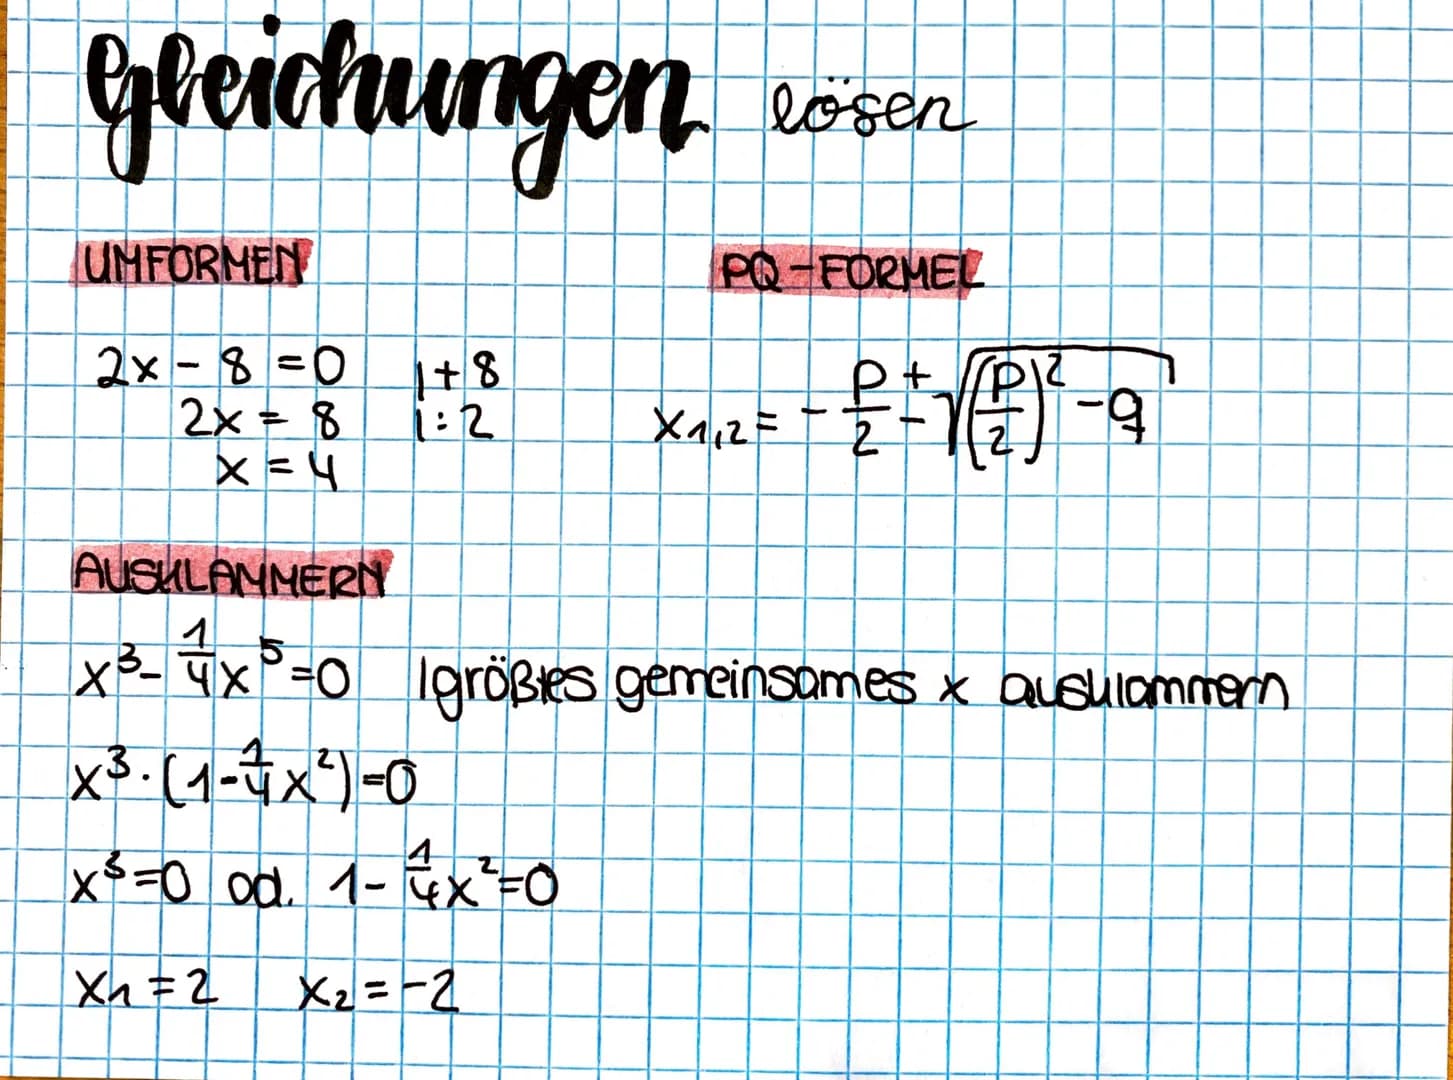 Gleichungen lösen
UMFORMEN
2x - 8 = 0 |+8
2x = 8 |:2
x = 4
PQ-FORMEL
x₁,₂ = -p/2 ± √((p/2)² - q)
AUSKLAMMERN
x³ - 1/4 x⁵ = 0 |größtes gemeinsames x ausklammern
x³ · (1 - 1/4 x²) = 0
x³ = 0 od. 1 - 1/4 x² = 0
x₁ = 2 x₂ = -2